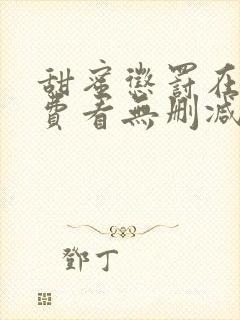 甜蜜懲罰在
費看無刪減
鄧丁